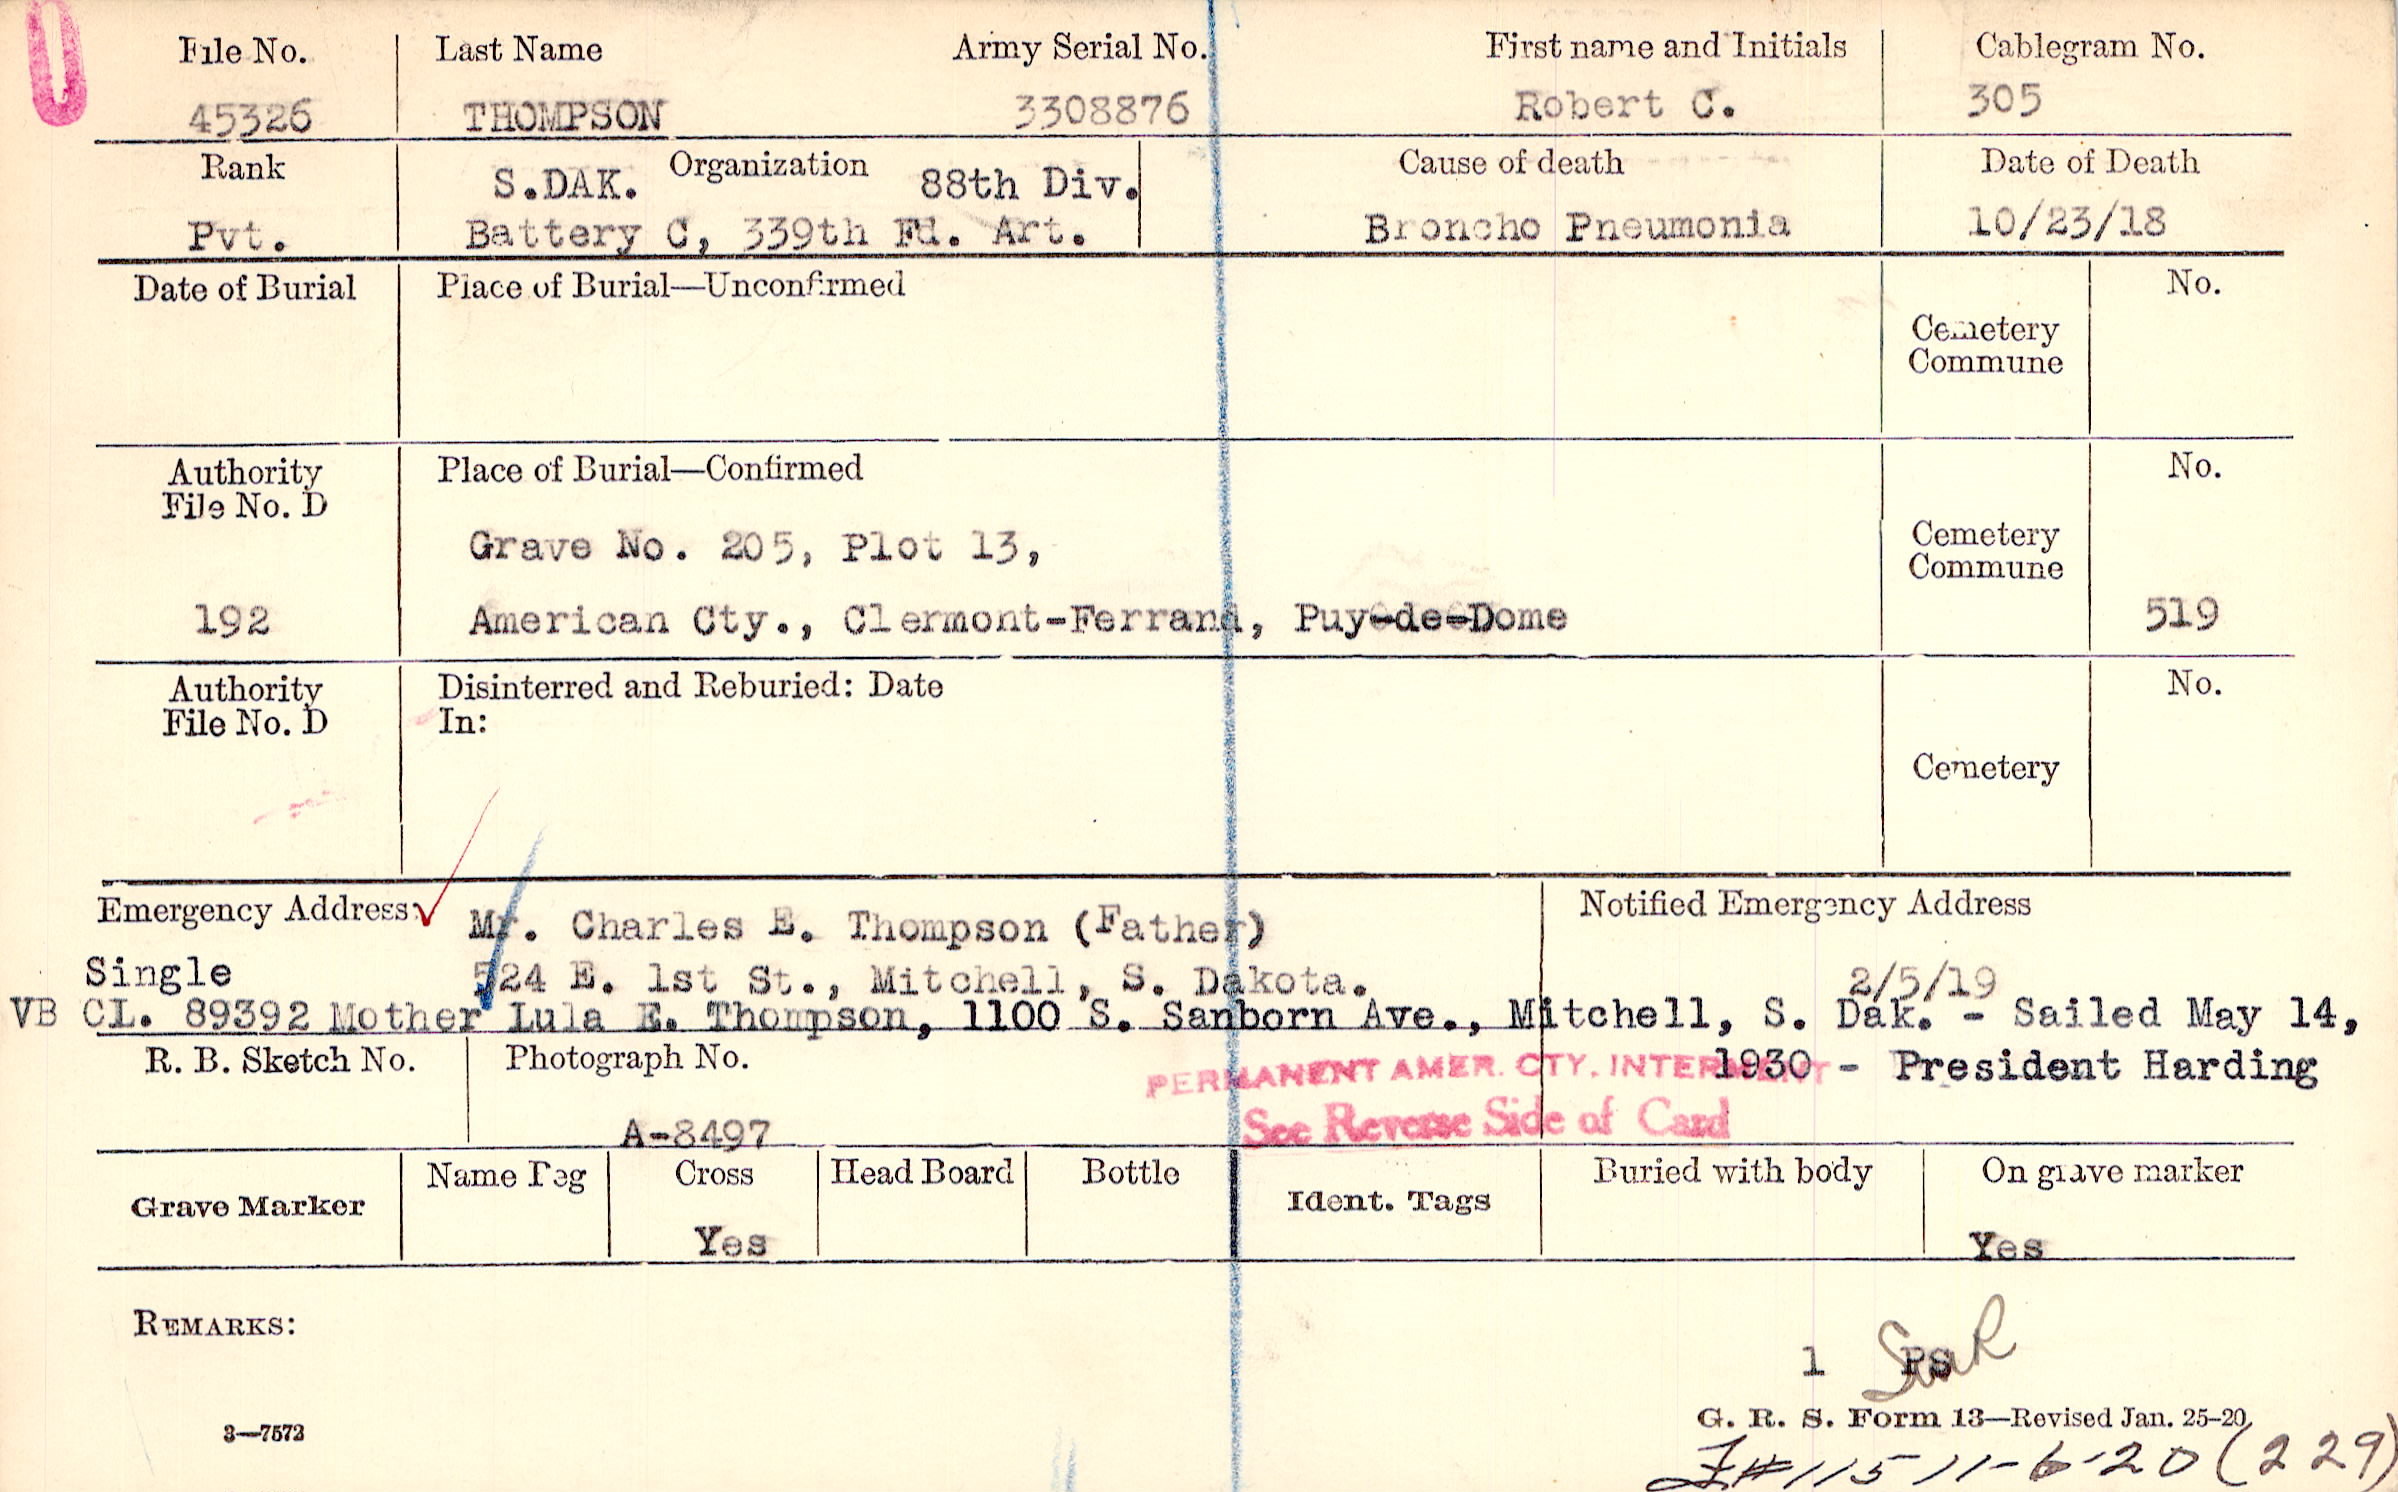 File No. Last Name Army Serial No. First name and Initials Cablegram No.
45326 THOMPSON 3308876 Robert C. 305
Rank S.DAK. Organization 88th Div. Cause of death Date of Death
Pvt. Battery C, 339th Fd. Art. Broncho Pneumonia 10/23/18
Date of Burial Place of Burial—Unconfirmed No.
Cemetery
Commune
Authority Place of Burial—Confirmed No.
File No. D
Grave No. 205, Plot 13, Cemetery
Commune
192 American Cty., Clermont-Ferrand, Puy-de-Dome 519
Authority Disinterred and Reburied: Date No.
File No. D In:
Cemetery
Emergency Address: Mr. Charles E. Thompson (Father) Notified Emergency Address
Single 524 E. 1st St., Mitchell, S. Dakota. 2/5/19
VB CL. 89392 Mother Lula E. Thompson, 1100 S. Sanborn Ave., Mitchell, S. Dak. - Sailed May 14,
R. B. Sketch No. Photograph No. PERMANENT AMER. CTY. INTERMENT 1930 - President Harding
A-8497 See Reverse Side of Card
Grave Marker Name Peg Cross Head Board Bottle Ident. Tags Buried with body On grave marker
Yes Yes
REMARKS:
1 PS
3—7573 G. R. S. Form 13—Revised Jan. 25-20
11-6-20 (229)